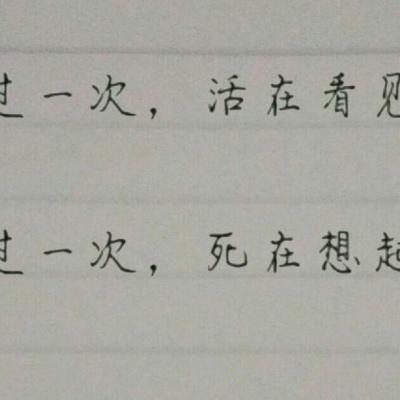 过一次，活在看见
过一次，死在想起